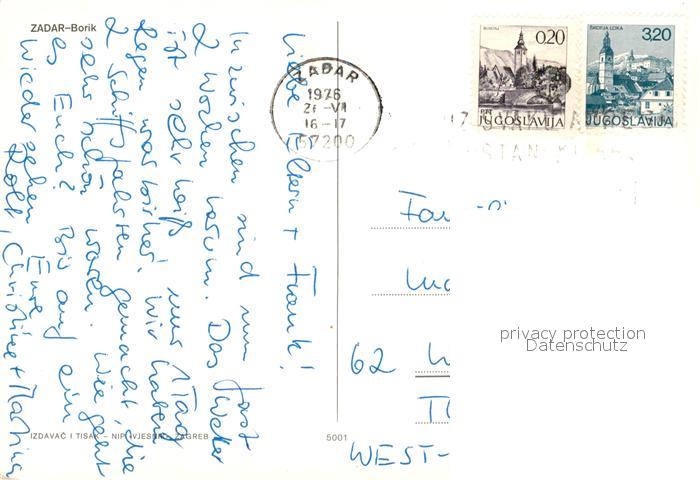 ZADAR-Borik
Liebe Eltern + Frank!
Inzwischen sind nun fast
2 Wochen herum. Das Wetter
ist sehr heiß, nur 1 Tag
Regen war bisher. Wir haben
2 Schiffsfahrten gemacht die
sehr schön waren. Wie geht
es Euch? Bis auf ein
Wiedersehen Eure
Rolf, Christine + Martina
IZDAVAČ I TISAK – NIP »VJESNIK« ZAGREB
5001
ZADAR
1976
16-17
57200
0.20
JUGOSLAVIJA
ŠKOFJA LOKA
3,20
JUGOSLAVIJA
Fa
62
WEST-
privacy protection
Datenschutz